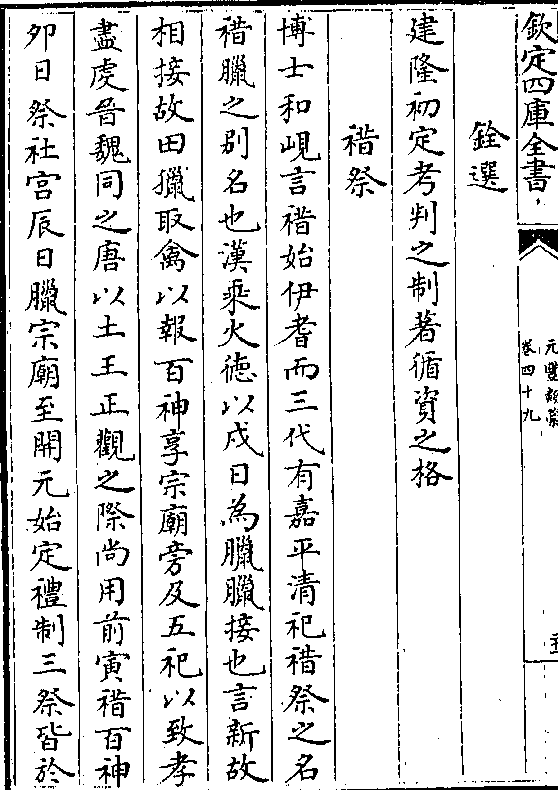 欽定四庫全書
元豐類藁
卷四十九
銓選
建隆初定考判之制著循資之格
䄍祭
博士和峴言䄍始伊耆而三代有嘉平清祀䄍祭之名
䄍臘之別名也漢乘火德以戌日為臘臘接也言新故
相接故田獵取禽以報百神享宗廟旁及五祀以致孝
盡虔晉魏同之唐以土王正觀之際尚用前寅䄍百神
夘日祭社宫辰日臘宗廟至開元始定禮制三祭皆於